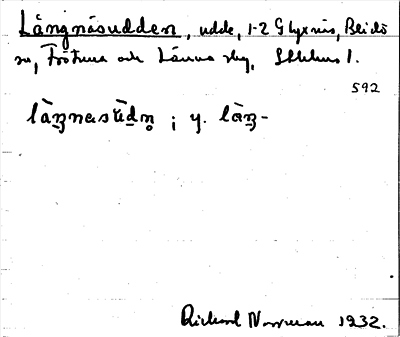 Långnäsudden, udde, 1-2 Glyxnäs, Blidö
sn, Frötuna och Länna skg, Sthlms l.
592
; y.
Richard Norrman 1932.